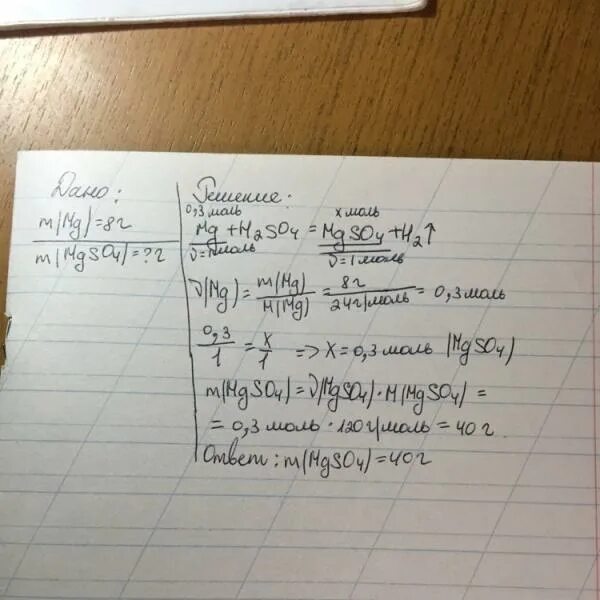 Дано:
m(Mg)=8г
m(MgSO₄)=?г
Решение:
0,3моль х моль
Mg+H₂SO₄=MgSO₄+H₂↑
ν=1моль ν=1моль
ν(Mg)=m(Mg)/M(Mg)=8г/24г/моль=0,3моль
0,3/1=х/1 => Х=0,3моль (MgSO₄)
m(MgSO₄)=ν(MgSO₄)·M(MgSO₄)=
=0,3моль·120г/моль=40г
Ответ: m(MgSO₄)=40г